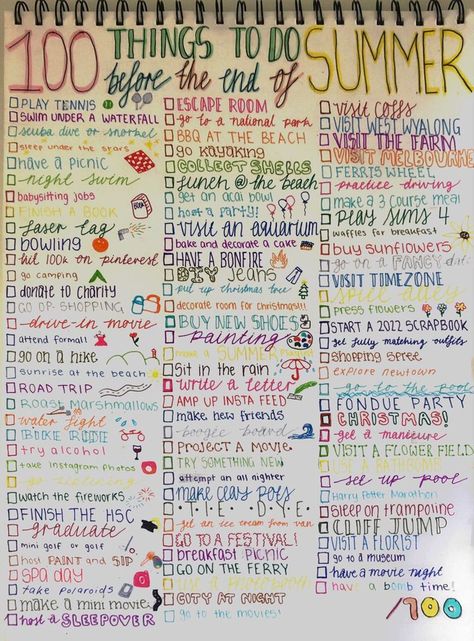 100 THINGS TO DO
before the end of SUMMER
PLAY TENNIS
SWIM UNDER A WATERFALL
scuba dive or snorkel
sleep under the stars
have a picnic
night swim
babysitting jobs
FINISH A BOOK
laser tag
bowling
hit 100k on pinterest
go camping
donate to charity
GO OP-SHOPPING
drive-in movie
attend formal!
go on a hike
sunrise at the beach
ROAD TRIP
Roast Marshmallows
water fight
BIKE RIDE
try alcohol
take instagram photos
go
watch the fireworks
FINISH THE HSC
graduate
mini golf or golf
host PAINT and SIP
SPA DAY
take polaroids
make a mini movie
host a SLEEPOVER
ESCAPE ROOM
go to a national park
BBQ AT THE BEACH
go KAYAKING
COLLECT SHELLS
lunch @ the beach
get an acai bowl
host a party!
visit an aquarium
bake and decorate a cake
HAVE A BONFIRE
DIY Jeans
put up christmas tree
decorate room for christmas!!
BUY NEW SHOES
painting
make a SUMMER
Sit in the rain
write a letter
AMP UP INSTA FEED
make new friends
boogie board
PROJECT A MOVIE
TRY SOMETHING NEW
attempt an all nighter
make clay pots
TIE DYE
get an ice cream from van
GO TO A FESTIVAL!
breakfast picnic
GO ON THE FERRY
use a photobooth
CITY AT NIGHT
go to the movies!
visit coffs
VISIT WEST WYALONG
VISIT THE FARM
VISIT MELBOURNE
FERRIS WHEEL
practice driving
make a 3 course meal
PLAY SIMS 4
waffles for breakfast
buy sunflowers
go on a FANCY
VISIT TIMEZONE
spill
press flowers
START A 2022 SCRAPBOOK
get fully matching outfits
shopping spree
explore newtown
go to the pool
FONDUE PARTY
CHRISTMAS!
get a manicure
VISIT A FLOWER FIELD
USE A BATHBOMB
set up pool
Harry Potter Marathon
sleep on trampoline
CLIFF JUMP
VISIT A FLORIST
go to a museum
have a movie night
have a bomb time!
/100